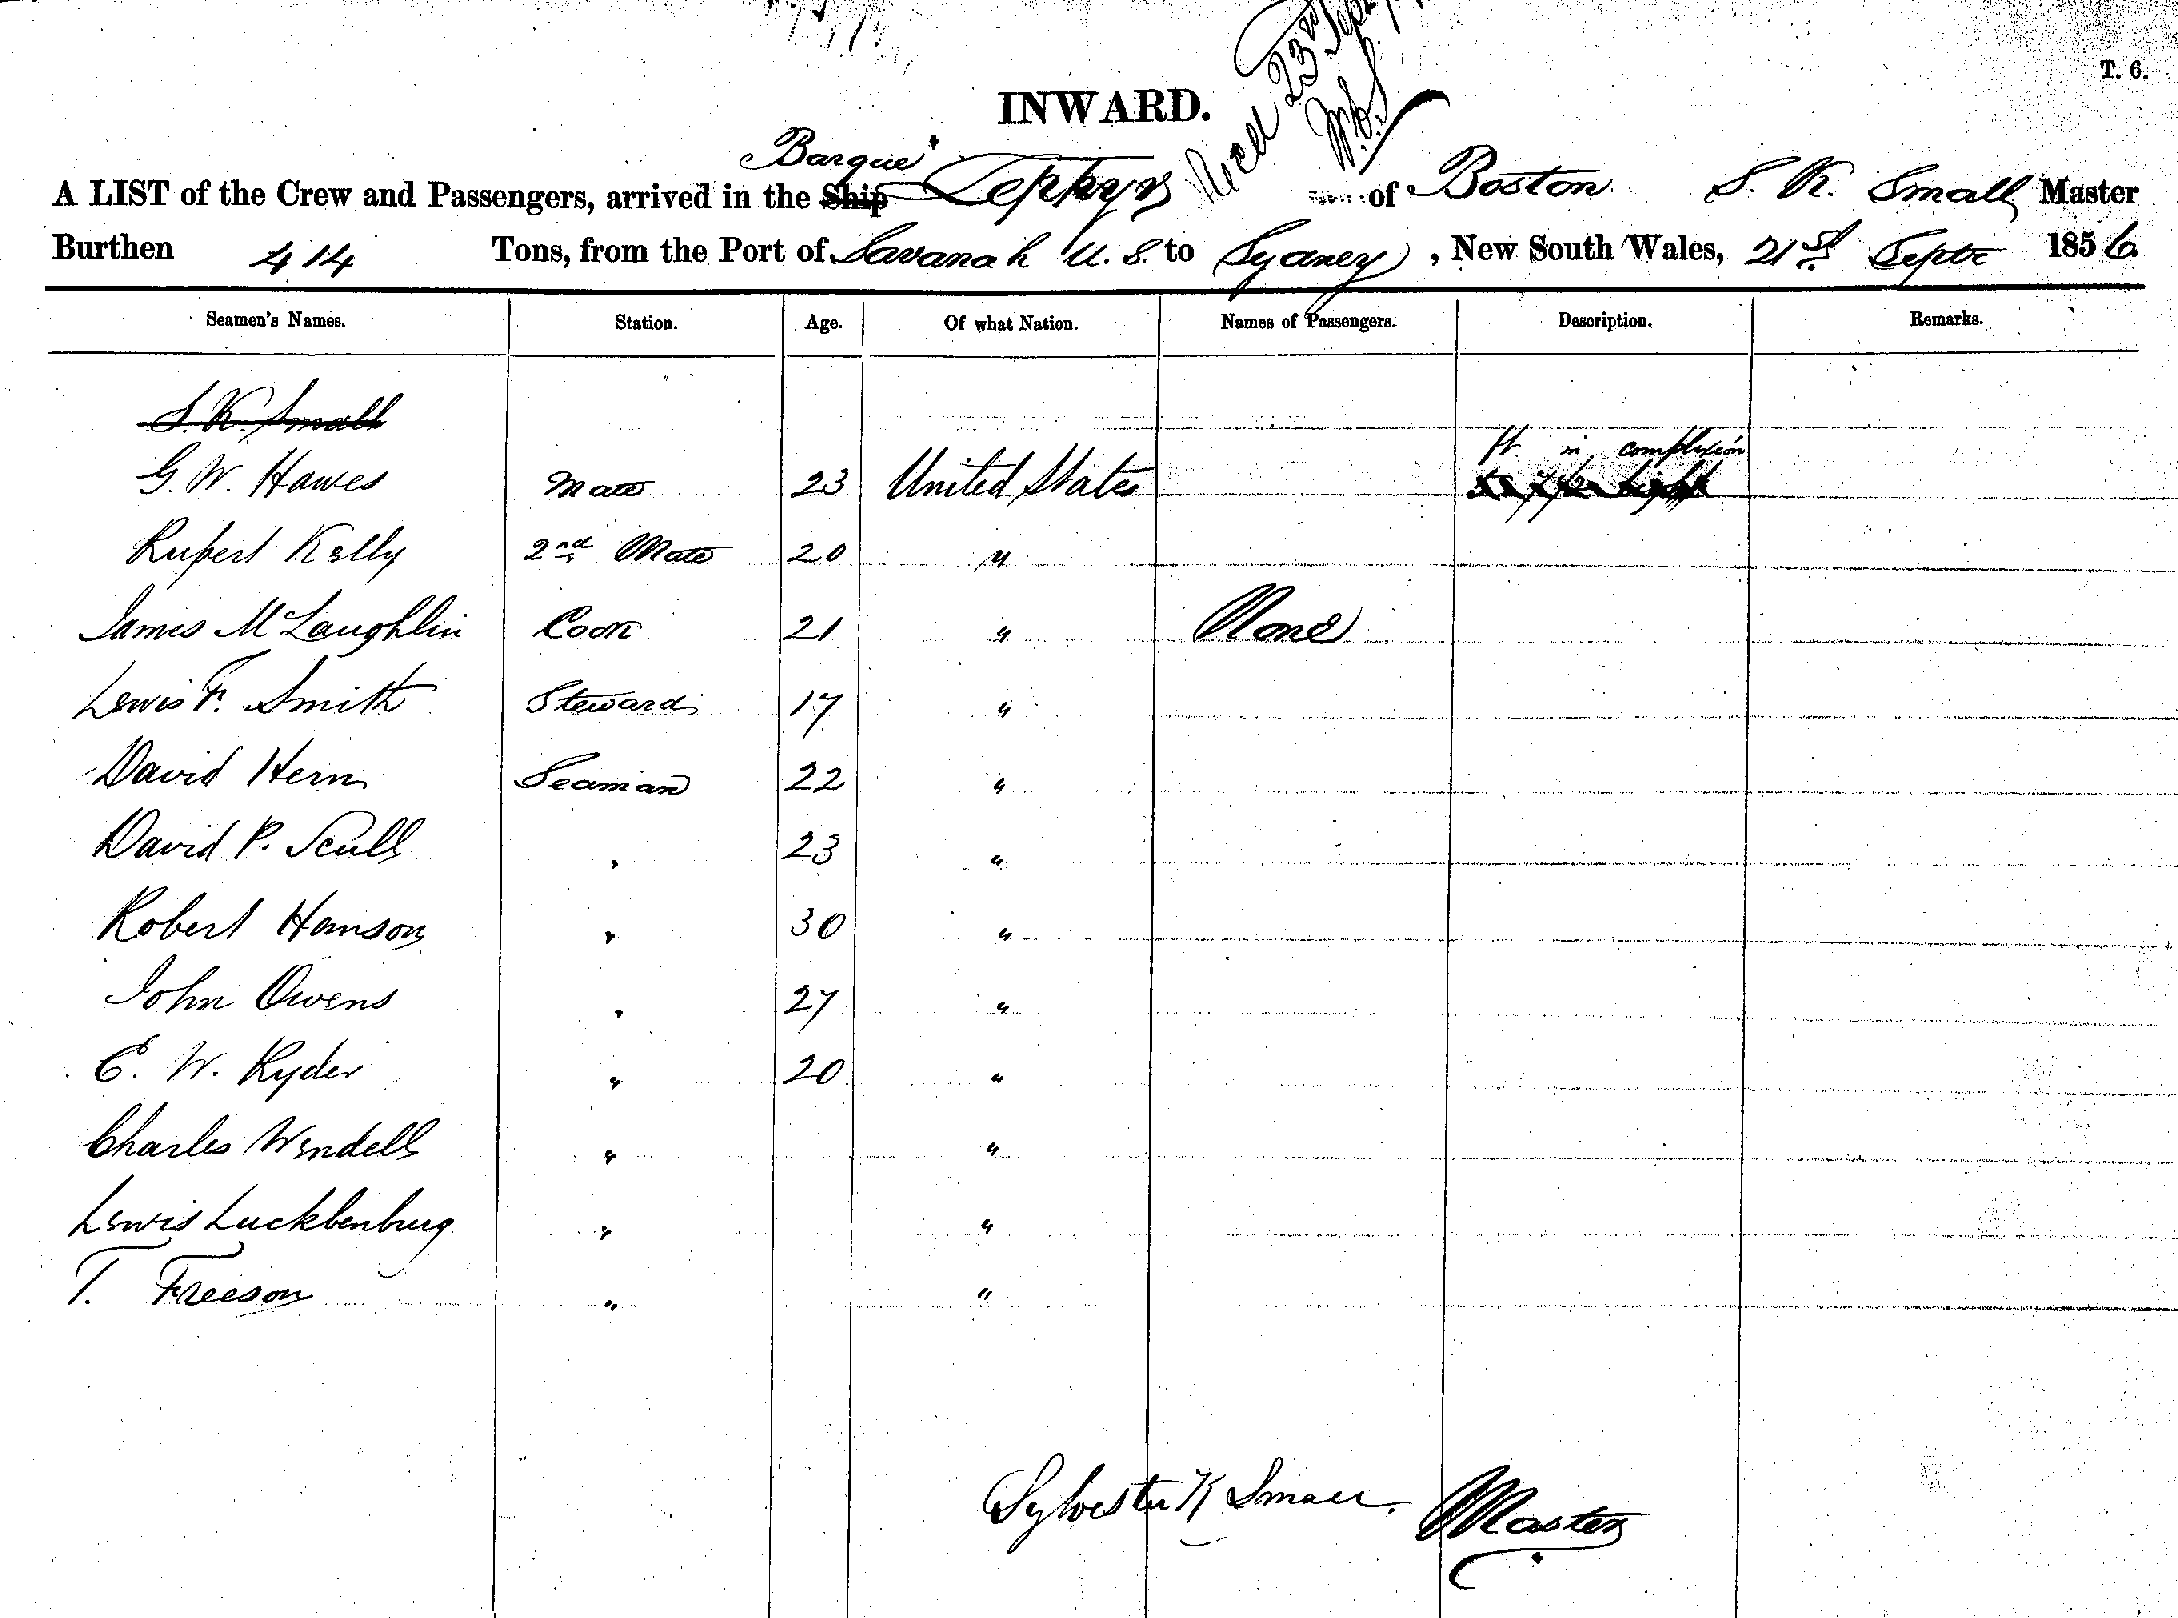 T. 6.
Recd 23rd Sept
INWARD.
Barque
A LIST of the Crew and Passengers, arrived in the Ship Zephyr of Boston S. K. Small Master
Burthen 414 Tons, from the Port of Savanah U. S. to Sydney, New South Wales, 21st Septr 1856.
Seamen's Names. Station. Age. Of what Nation. Names of Passengers. Description. Remarks.
S. K. Small
ft in complexion
G. W. Hawes Mate 23 United States
Rupert Kelly 2nd Mate 20 "
James McLaughlin Cook 21 " None
Lewis F. Smith Steward 17 "
David Hern Seaman 22 "
David P. Scull " 23 "
Robert Hanson " 30 "
John Owens " 27 "
E. W. Ryder " 20 "
Charles Wendell " "
Lewis Lucklenburg " "
T. Freeson " "
Sylvester K Small Master